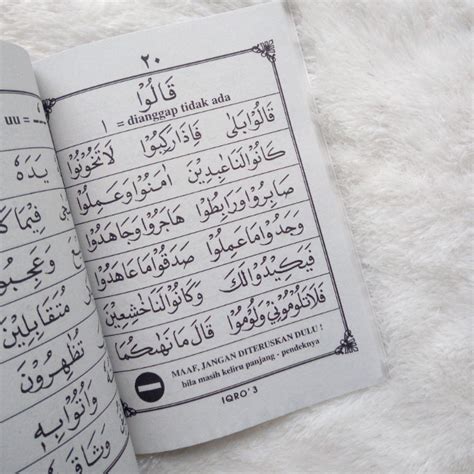 ٢٠
قَالُوْا
ا = dianggap tidak ada
قَالُوْابَلٰى فَاِذَارَكِبُوْا لَاتَخُوْنُوْا
كَانُوْالَنَاعٰبِدِيْنَ اٰمَنُوْاوَعَمِلُوْا
صَابِرُوْاوَرَابِطُوْا هَاجَرُوْاوَجَاهَدُوْا
وَجَدُوْامَاعَمِلُوْا صَدَقُوْامَاعَاهَدُوْا
فَيَكِيْدُوْالَكَ وَكَانُوْالَنَاخٰشِعِيْنَ
فَلَاتَلُوْمُوْنِيْ وَلُوْمُوْا قَالَ مَانَهٰىكُمَا
MAAF, JANGAN DITERUSKAN DULU !
bila masih keliru panjang - pendeknya
IQRO' 3
يَدَهُ
فِيْمَا
مُتَقَابِلِيْنَ
تُظْهِرُوْنَ
وَاُتُوْابِهٖ